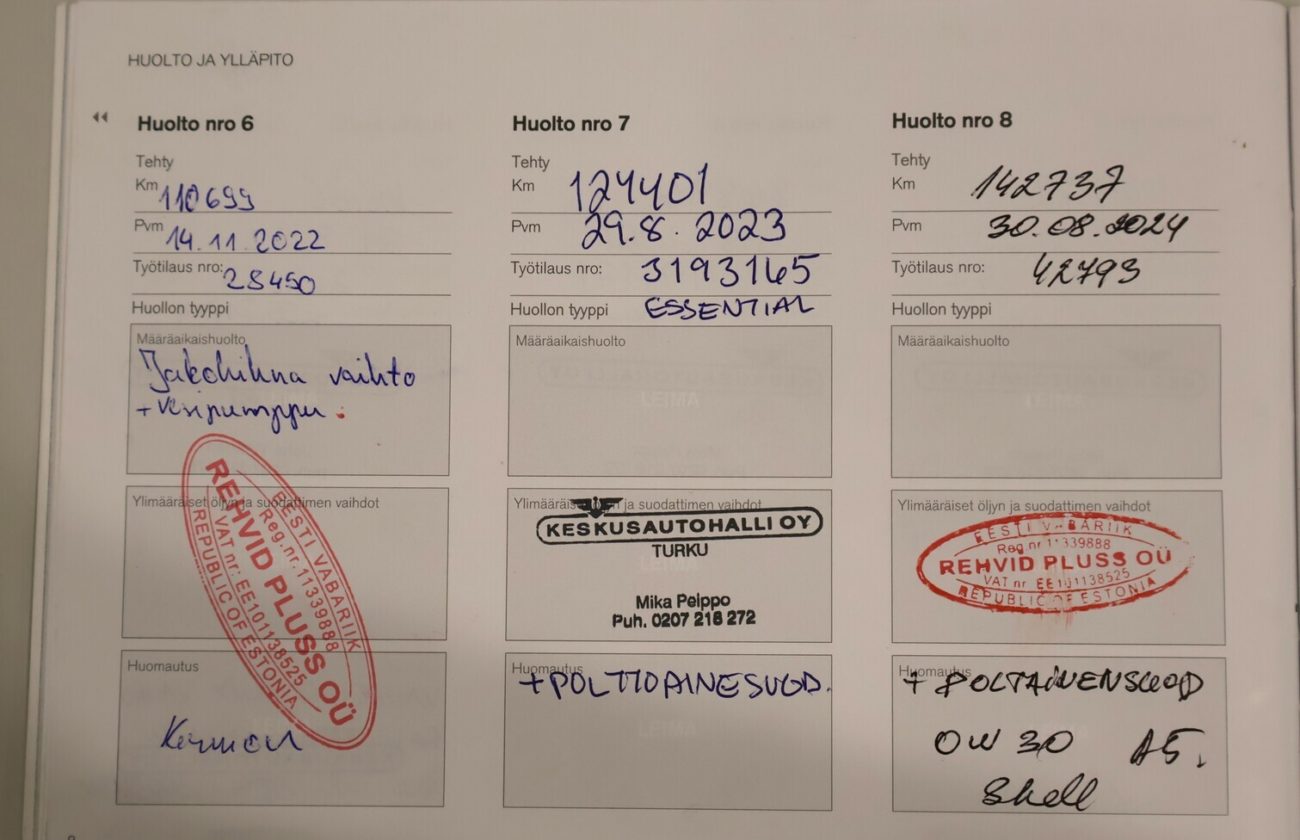 HUOLTO JA YLLÄPITO
Huolto nro 6
Tehty
Km 110699
Pvm 14.11.2022
Työtilaus nro: 28450
Huollon tyyppi
Määräaikaishuolto
Jakohihna vaihto
+ Vesipumppu.
Ylimääräiset öljyn ja suodattimen vaihdot
EESTI VABARIIK
Reg.nr.11339888
REHVID PLUSS OÜ
VAT nr: EE101138525
REPUBLIC OF ESTONIA
Huomautus
Huolto nro 7
Tehty
Km 124401
Pvm 29.8.2023
Työtilaus nro: 3193165
Huollon tyyppi ESSENTIAL
Määräaikaishuolto
LEIMA
Ylimääräiset öljyn ja suodattimen vaihdot
KESKUSAUTOHALLI OY
TURKU
LEIMA
Mika Peippo
Puh. 0207 218 272
Huomautus
+ POLTTOAINESUOD.
LEIMA
Huolto nro 8
Tehty
Km 142737
Pvm 30.08.2024
Työtilaus nro: 42793
Huollon tyyppi
Määräaikaishuolto
LEIMA
Ylimääräiset öljyn ja suodattimen vaihdot
EESTI VABARIIK
Reg.nr 11339888
REHVID PLUSS OÜ
VAT nr EE101138525
REPUBLIC OF ESTONIA
Huomautus
+ POLTAINENSUOD
OW 30 A5.
Shell